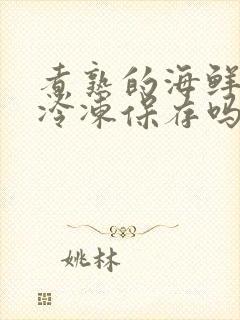 煮熟的海鲜
冷冻保存吗
姚林